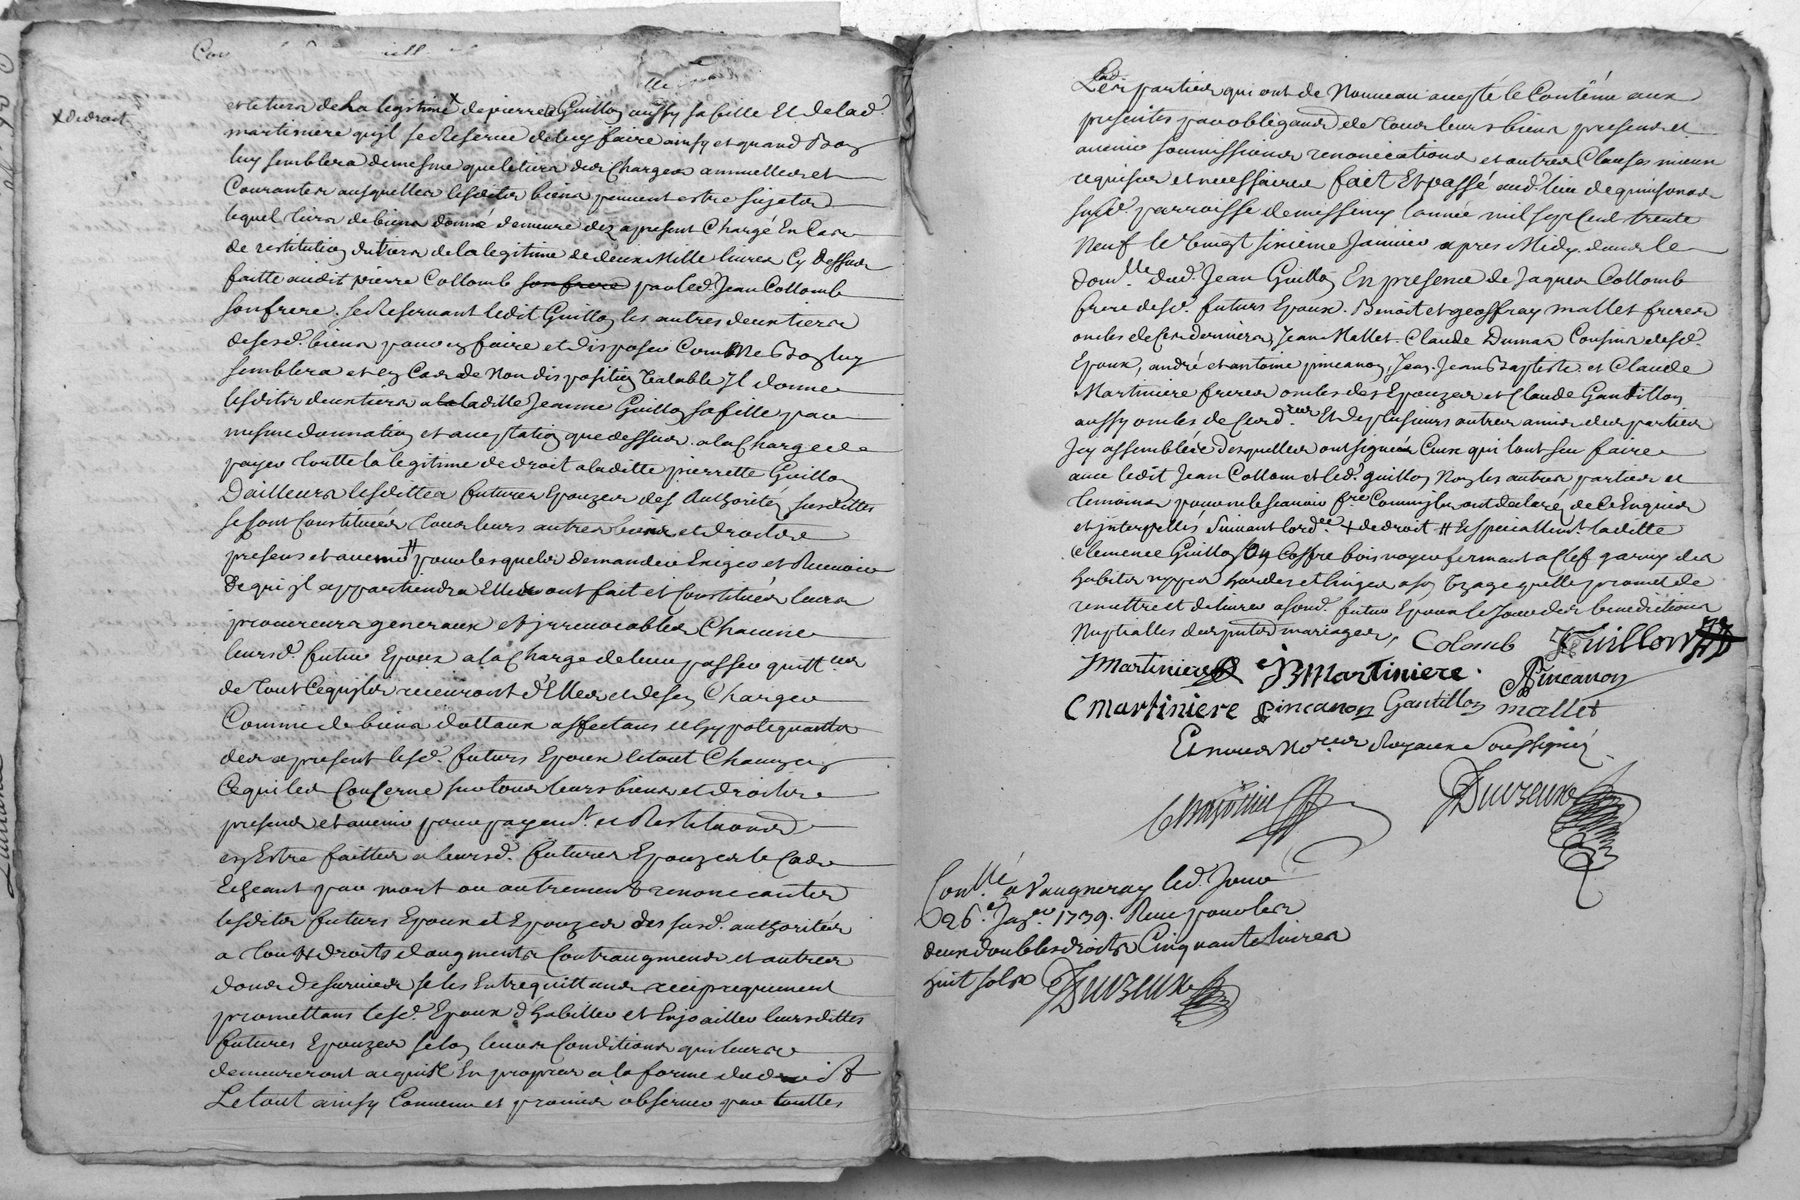 + de droit
et le tiers de la legitime + de pierrette Guillon aussy sa fille et de lad.
martiniere qu'jl se Reserve de luy faire ainsy et quand Bon
luy semblera de mesme que le tiers des Charges annuelles et
Courantes ausquelles lesdits biens peuvent estre sujets
lequel tiers de biens donné demeure dez apresent Chargé En Cas
de restitution du tiers de la legitime de deux Mille livres Cy dessus
faitte audit pierre Collomb son frere par led. Jean Collomb
son frere. se Reservant ledit Guillon les autres deux tiers
de sesd. biens pour en faire et disposer Comme Bon luy
semblera et en Cas de Non disposition valable Jl donne
lesdits deux tiers a la laditte Jeanne Guillon sa fille par
mesme donnation et acceptation que dessus. a la Charge de
payer toutte la legitime de droit a laditte pierrette Guillon
D'ailleurs lesdittes futures Epouzes des Authorités susdittes
se sont Constituées tous leurs autres biens et droits
presens et avenir # pour lesquels demander Exiger et Recevoir
De qui jl appartiendra Elles ont fait et Constitués leurs
procureurs generaux et jrrevocables Chacune
leursd. futur Epoux a la Charge de leur passer quitt.ces
de tout Ce qu'ils recevront d'Elles et de s'en Charger
Comme de biens dottaux affectans et hypotequants
des apresent lesd. futurs Epoux le tout Chacun en
Ce qui les Conserne sur tous leurs biens et droits
presens et avenir pour payem.t et Restitutions
en Estre faittes a leursd. futures Epouzes le Cas
Echeant par mort ou autrement renonceantes
lesdits futurs Epoux et Epouzes des susd. authorités
a tous droits d'augments Contraugments et autres
dons de survies se les Entrequittans reciproquement
promettans lesd. Epoux d'habiller et Enjoailler leursdittes
futures Epouzes selon leurs Conditions qui leurs
demeureront acquis En propres a la forme du droit
Le tout ainsy Convenu et promis observer par touttes
Lesd. parties qui ont de Nouveau accepté le Contenu aux
presentes par obligations de tous leurs biens presens et
avenir soumissions renonciations et autres Clauses mieux
requises et necessaires fait Et passé aud. lieu de quinsonas
susd. parroisse de messimy l'année mil sept Cent trente
Neuf le vingt sixieme Janvier apres Midy. dans le
dom.lle Dud. Jean Guillon En presence de Jaques Collomb
frere desd. futurs Epoux. Benoit et geoffray mallet freres
oncles de Ces derniers, Jean Mallet. Claude Dumas Cousins desd.
Epoux, andré et antoine pincanon, Jean, Jean Baptiste et Claude
Martiniere freres oncles des Epouzes et Claude Gantillon
aussy oncles de Cesd. Et de plusieurs autres amis des parties
Jcy assemblées desquelles ont signées Ceux qui l'ont sçu faire
avec ledit Jean Collomb et led. guillon Non les autres parties et
temoins pour ne le scavoir f.re Comm'jls ont declarés de Ce Enquis
et jnterpellés Suivant l'ord.ce + de droit # Et speciallem.t laditte
Clemence Guillon Un Coffre bois noyer fermant a Clef garny des
habits nippes hardes et linges a son Uzage qu'elle promet de
remettre et delivrer a sond. futur Epoux le Jour des benedictions
Nuptialles des pntes mariages,
Colomb Guillon
JMartiniere JBMartiniere. Pincanon
C martiniere Pincanon Gantillon mallet
Et nous No.res Royaux Soussignés
Duvzeux
Con.llé a Vaugneray led. Jour
26.e Jan.er 1739. Reçu pour les
deux doubles droits Cinquante livres
huit sols Duvzeux